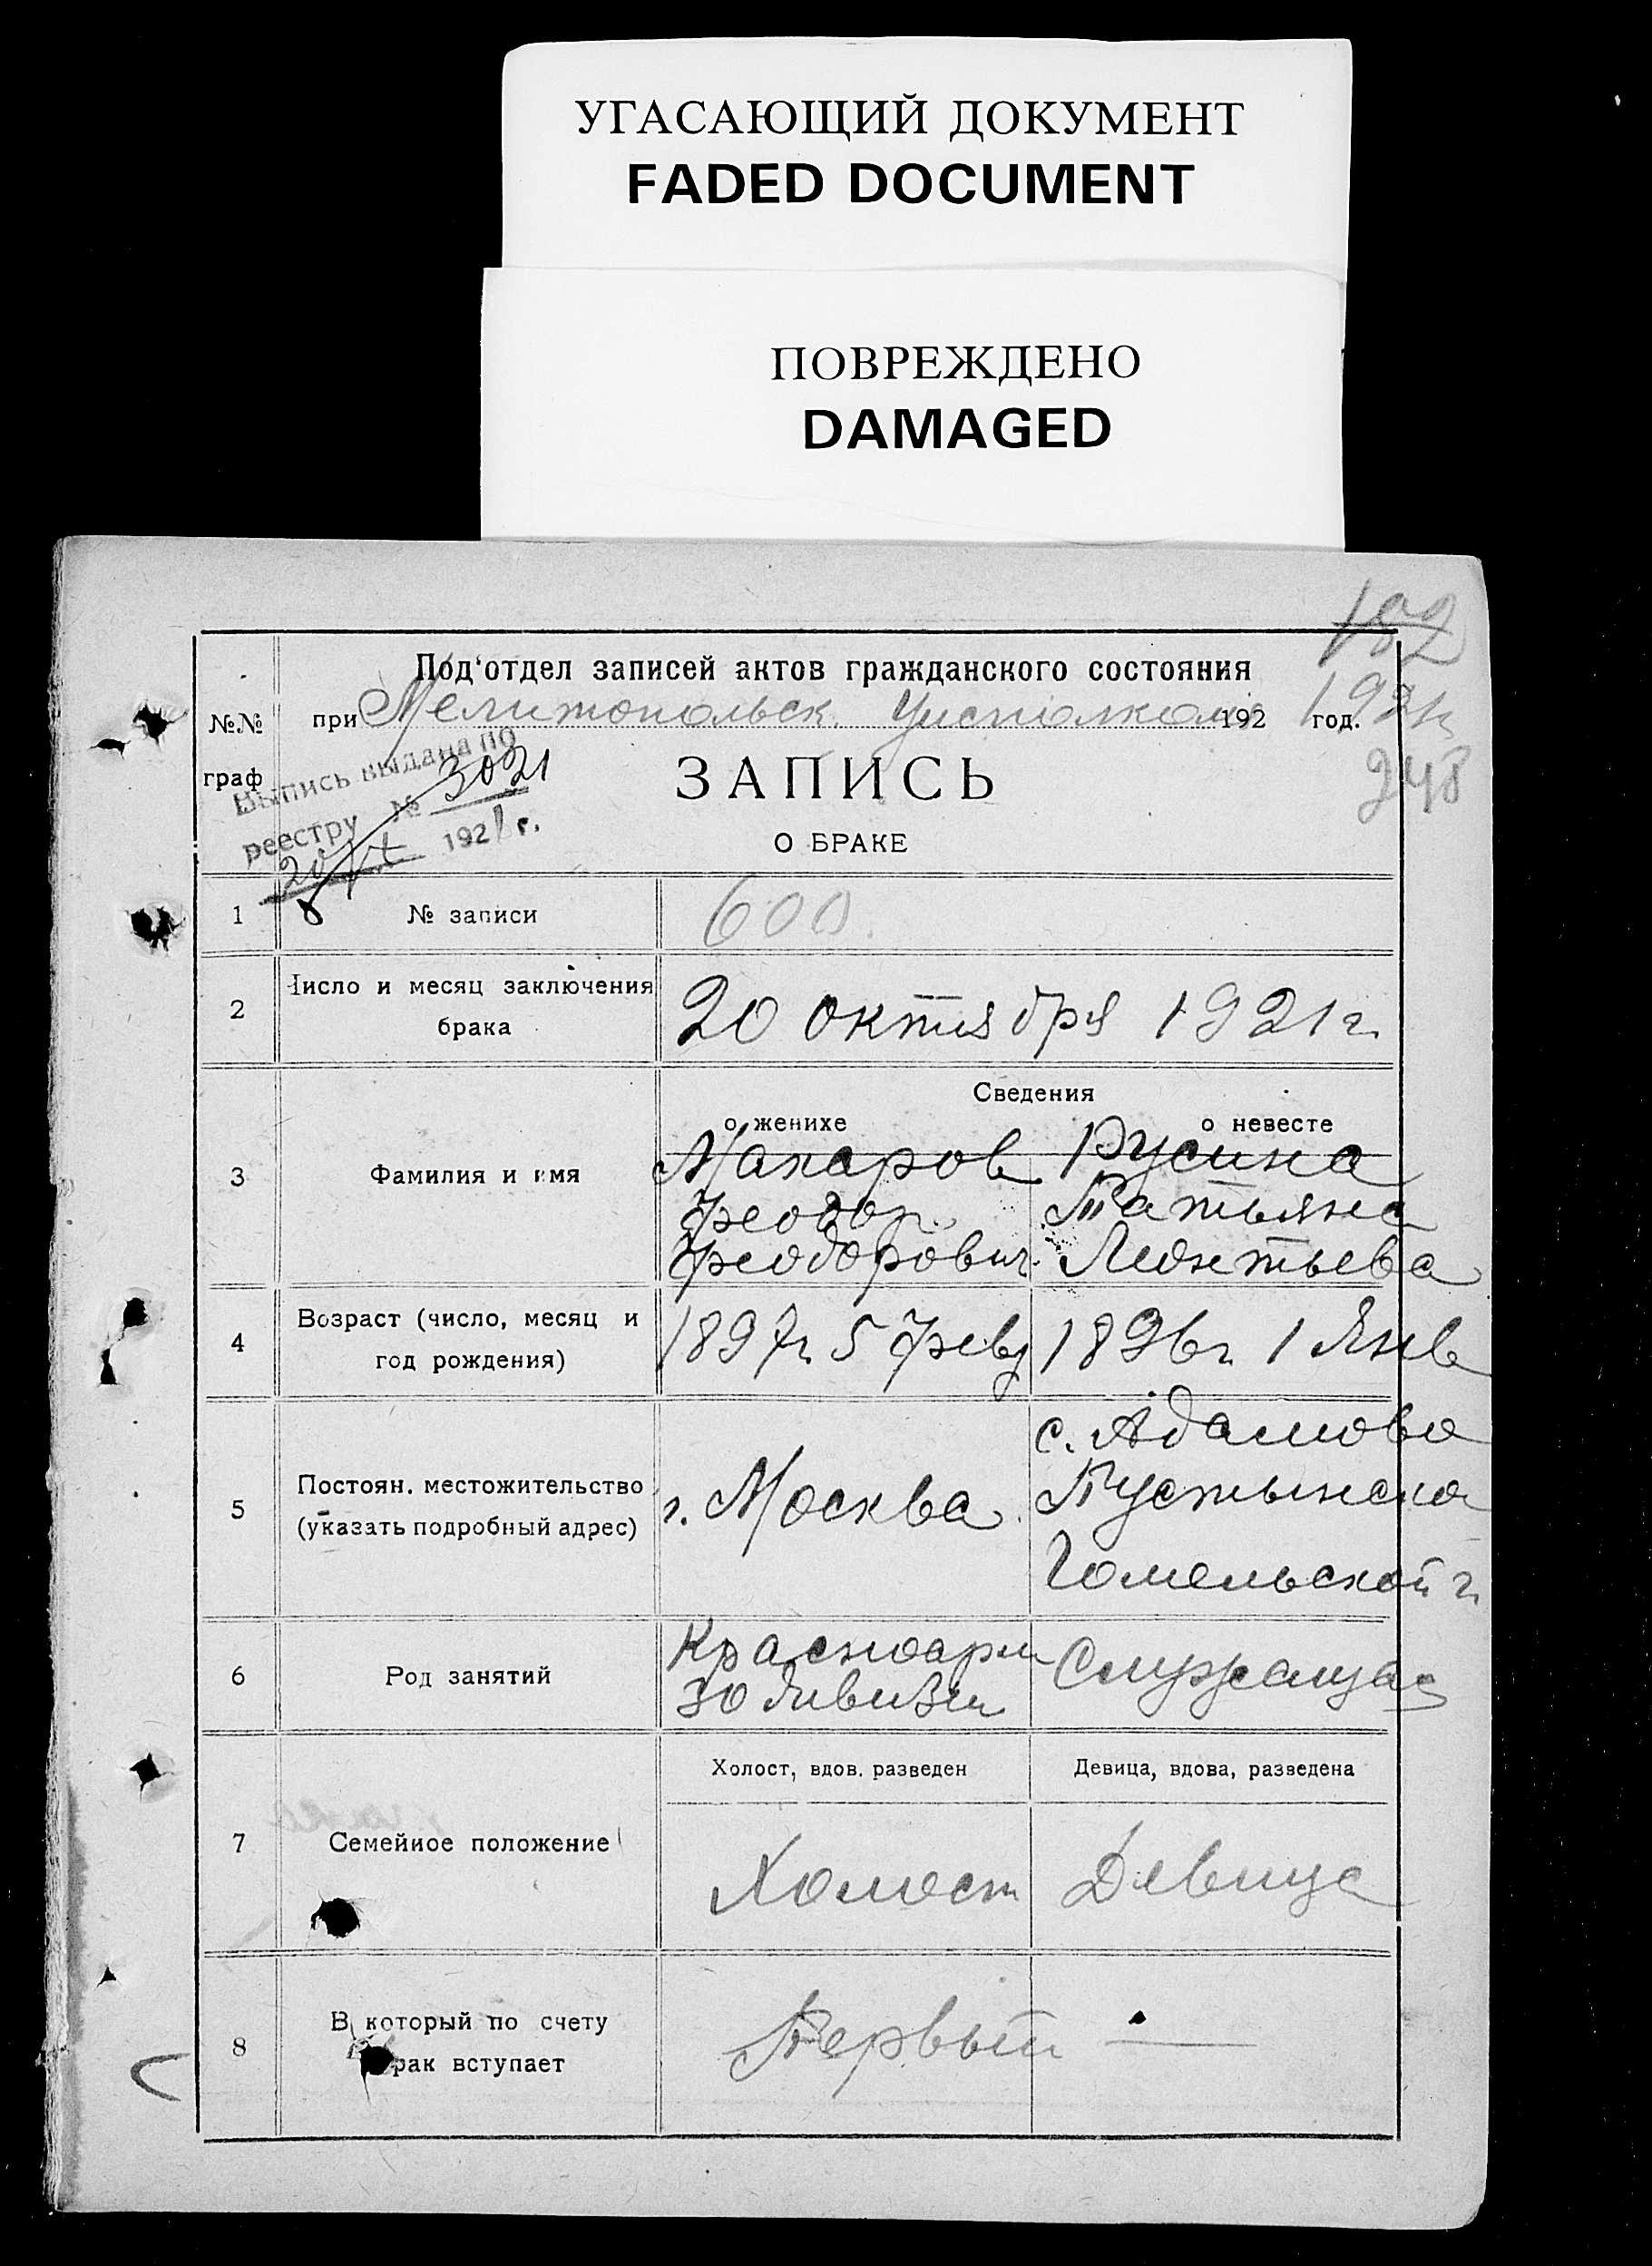 УГАСАЮЩИЙ ДОКУМЕНТ
FADED DOCUMENT
ПОВРЕЖДЕНО
DAMAGED
182
Под'отдел записей актов гражданского состояния
№№ граф
при Мелитопольск. Уисполкоме 192 год. 1921г
248
Выпись выдана по
реестру № 3021
20/X 1921 г.
ЗАПИСЬ
О БРАКЕ
1 № записи 600
2 Число и месяц заключения брака 20 октября 1921 г.
Сведения
о женихе о невесте
3 Фамилия и имя
Макаров Русина
Феодор Татьяна
Феодорович Леонтьева
4 Возраст (число, месяц и год рождения) 1897г 5 февр 1896г 1 Янв
5 Постоян. местожительство (указать подробный адрес)
г. Москва
с. Адамово
Пустынска
Гомельской г.
6 Род занятий
Красноарм
30 дивизии
Служащая
Холост, вдов. разведен Девица, вдова, разведена
7 Семейное положение Холост Девица
8 В который по счету
брак вступает
Первый —